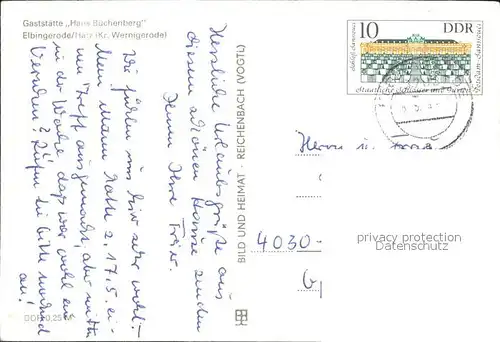 Gaststätte „Haus Büchenberg"
Elbingerode/Harz (Kr. Wernigerode)
Herzliche Urlaubsgrüße aus
diesem schönen Hause senden
Ihnen Ihre
Wir fühlen uns hier sehr wohl. –
Mein Mann hatte z. 17.5. ei-
nen Treff ausgemacht, aber mitten
in der Woche, das war wohl ein
Rufen Sie bitte nochmal
an!
DDR 0,25 M
BILD UND HEIMAT · REICHENBACH (VOGTL)
10 DDR
Potsdam-Sanssouci
Staatliche Schlösser und Gärten
Herrn u. Frau
4030-
privacy protection
Datenschutz